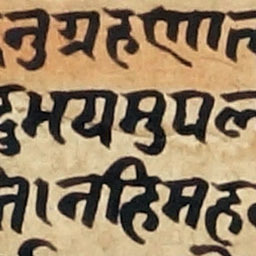 नुग्रहणात
दुभयमुपल
ता।नहिमह